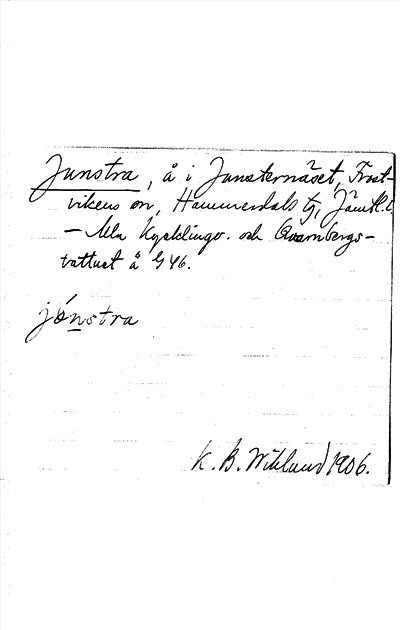 Junstra, å i Junsternäset, Frost-
vikens sn, Hammerdals tg, Jämtl. l.
— Mla Kycklingv. och Qvarnbergs-
vattnet å G 46.
jónstra
K. B. Wiklund 1906.